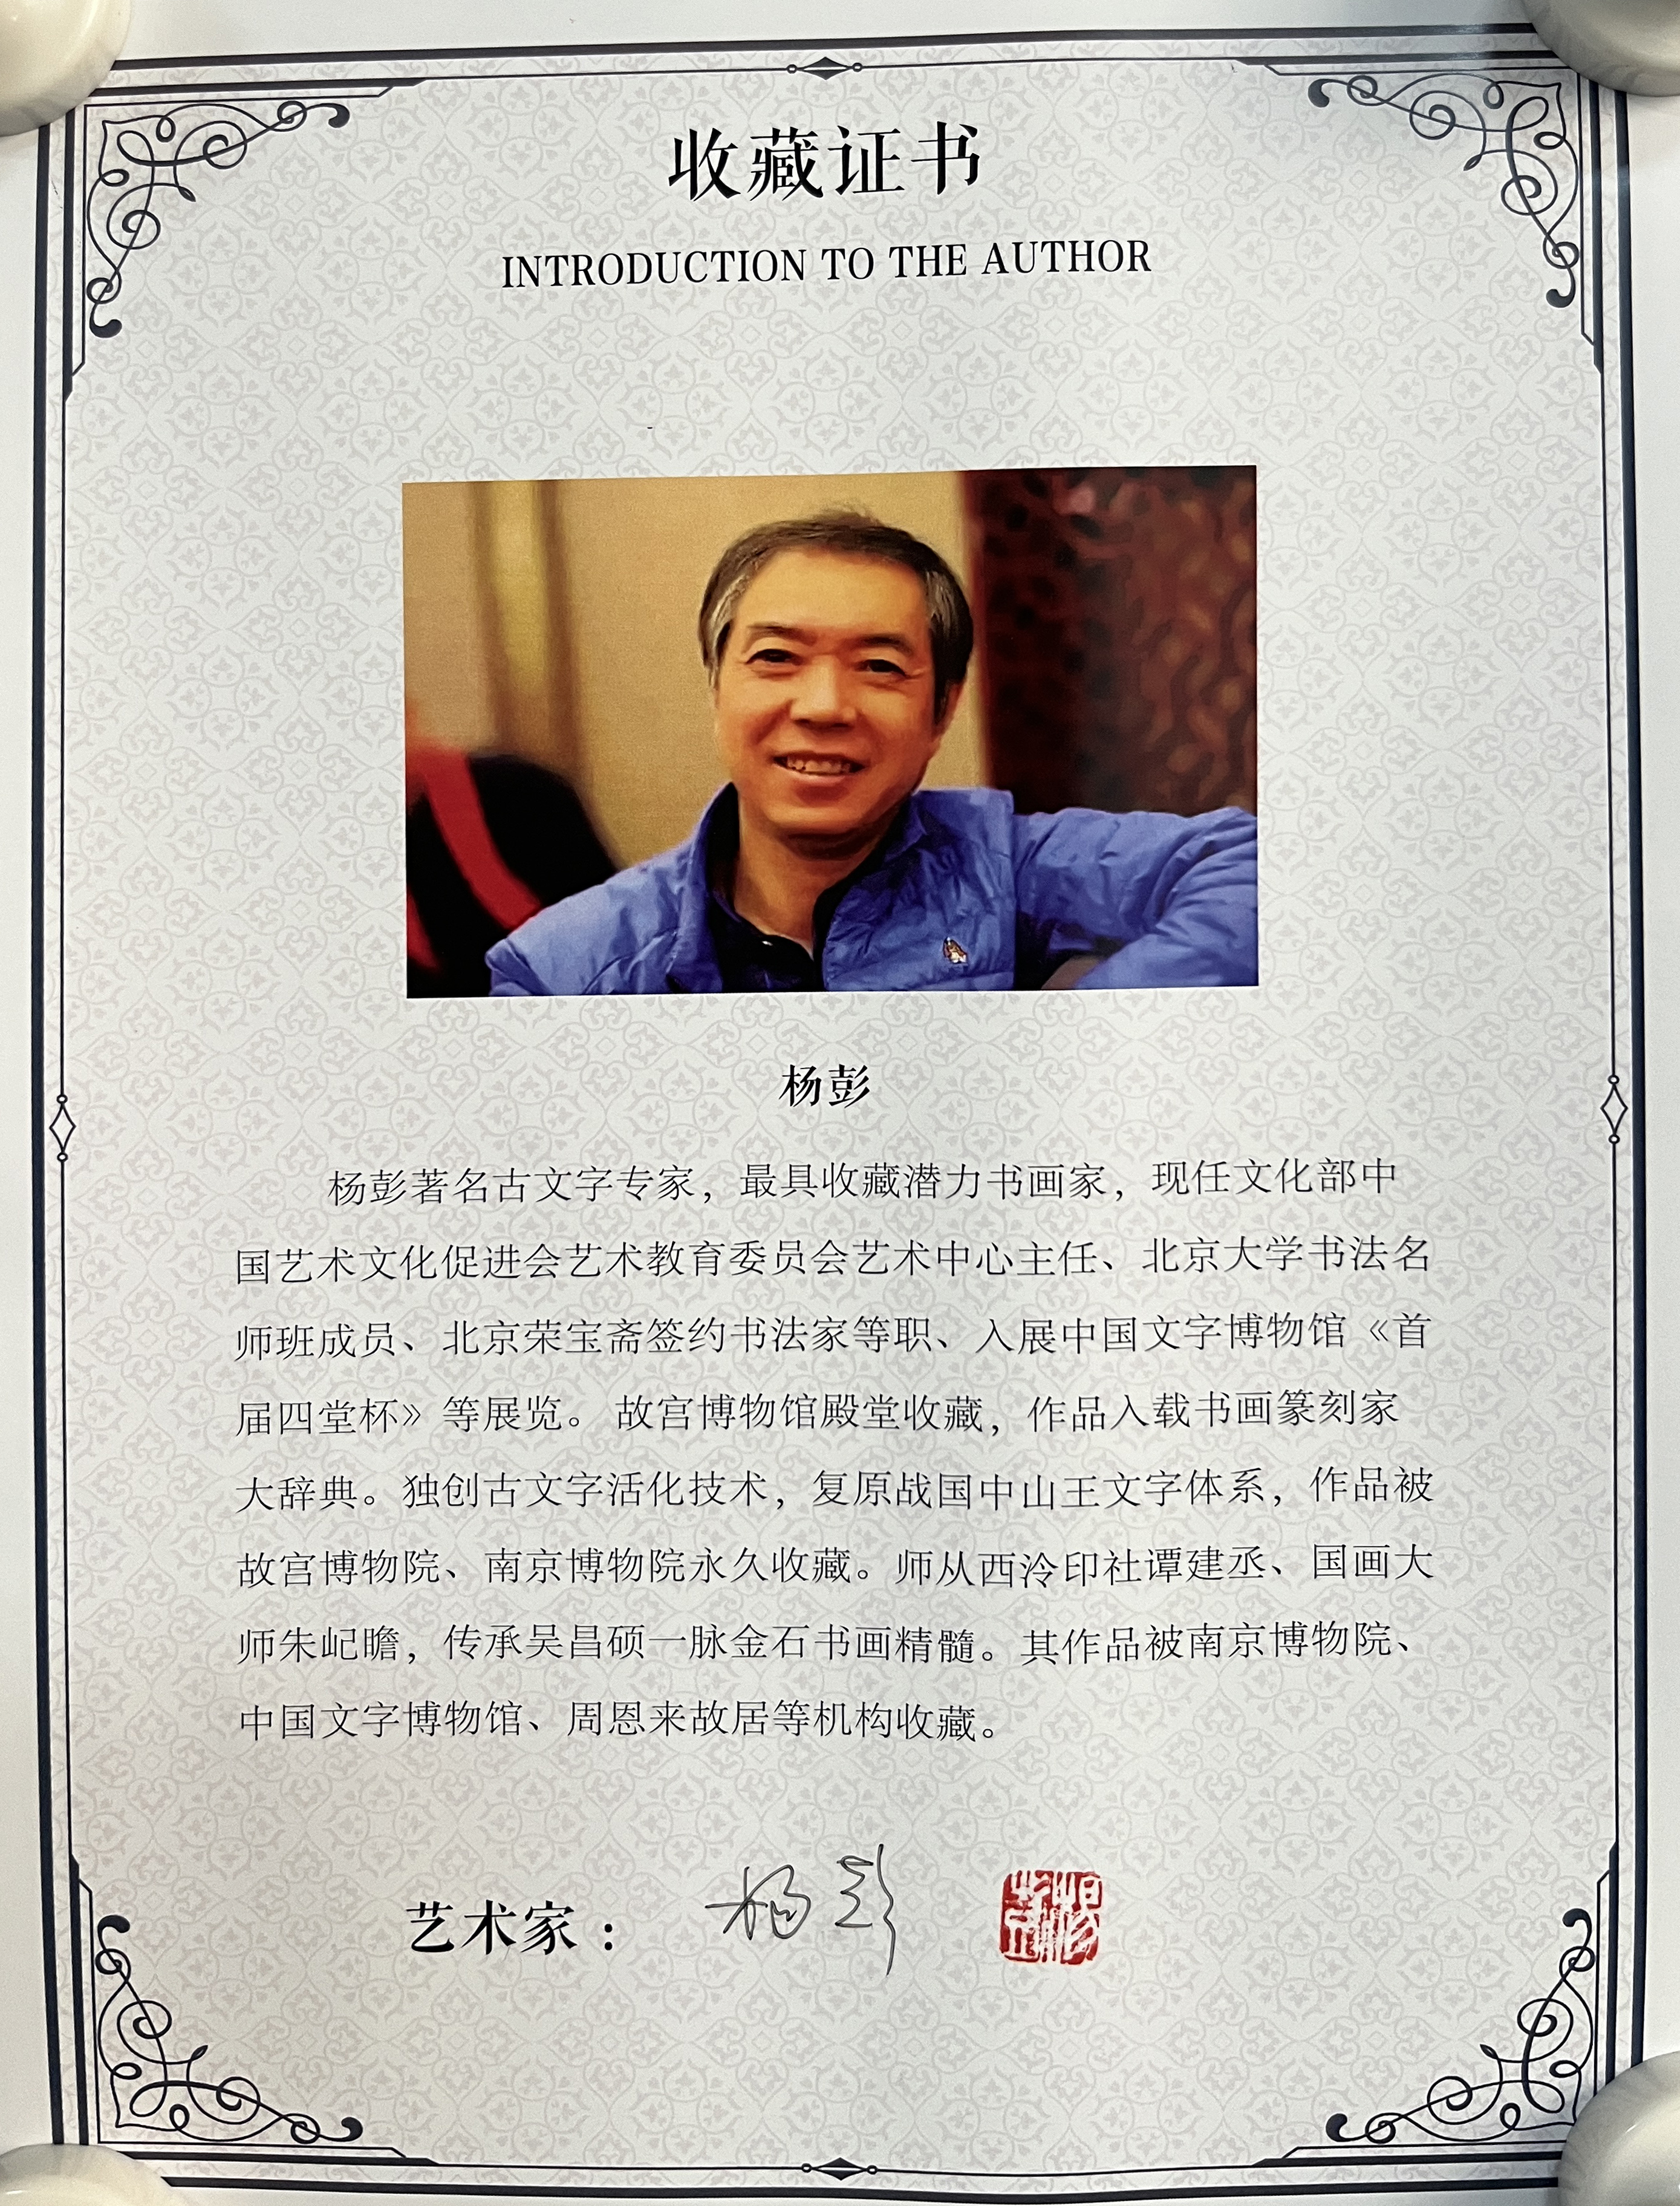 收藏证书
INTRODUCTION TO THE AUTHOR
杨彭
杨彭著名古文字专家，最具收藏潜力书画家，现任文化部中
国艺术文化促进会艺术教育委员会艺术中心主任、北京大学书法名
师班成员、北京荣宝斋签约书法家等职、入展中国文字博物馆《首
届四堂杯》等展览。故宫博物馆殿堂收藏，作品入载书画篆刻家
大辞典。独创古文字活化技术，复原战国中山王文字体系，作品被
故宫博物院、南京博物院永久收藏。师从西泠印社谭建丞、国画大
师朱屺瞻，传承吴昌硕一脉金石书画精髓。其作品被南京博物院、
中国文字博物馆、周恩来故居等机构收藏。
艺术家：杨彭